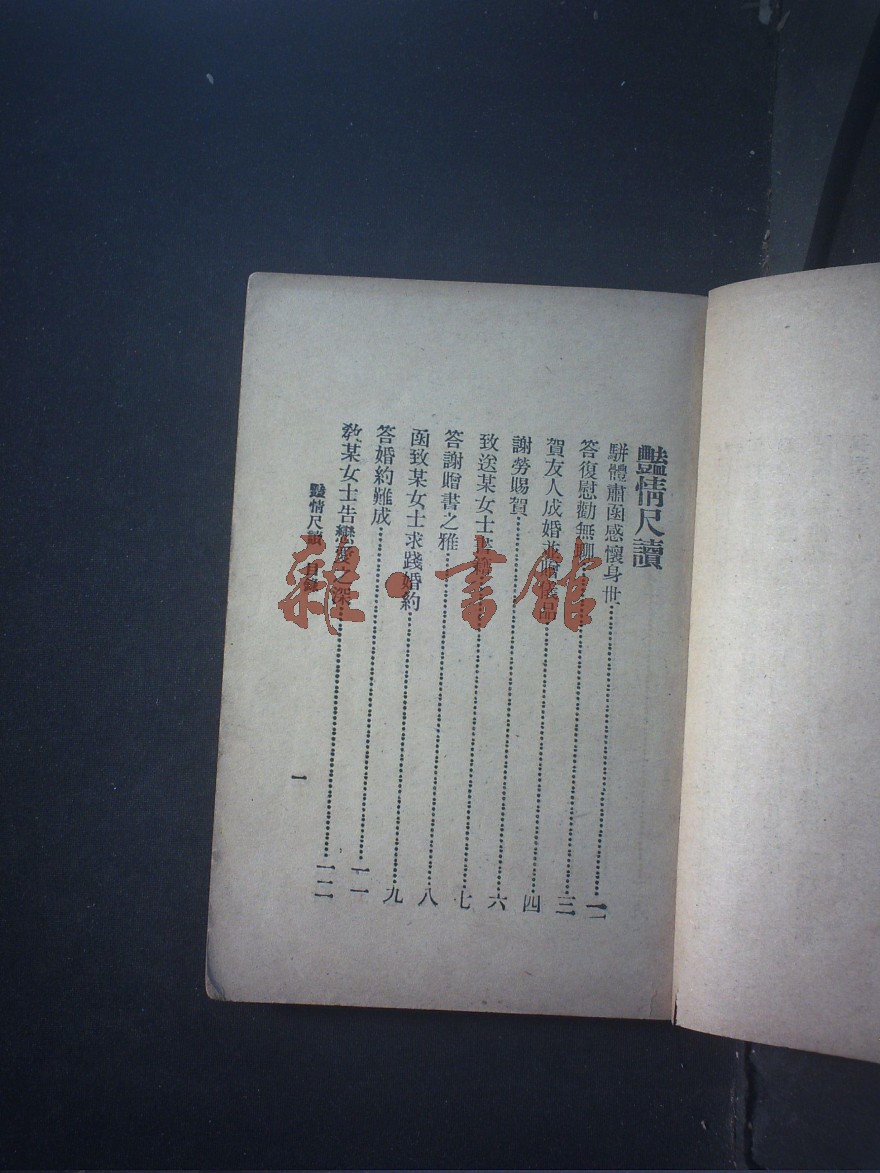 豔情尺讀
駢體肅函感懷身世
答復慰勸無聊 三
賀友人成婚並贈儀品 四
謝勞賜賀 六
致送某女士 七
答謝贈書之雅 八
函致某女士求踐婚約 九
答婚約難成 一一
致某女士告戀愛之深 一二
豔情尺讀 目錄
一
雜·書館